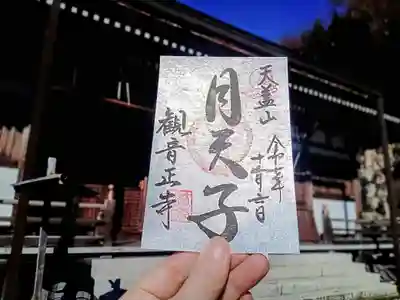 天盖山
令和年
十二月二日
月天子
観音正寺